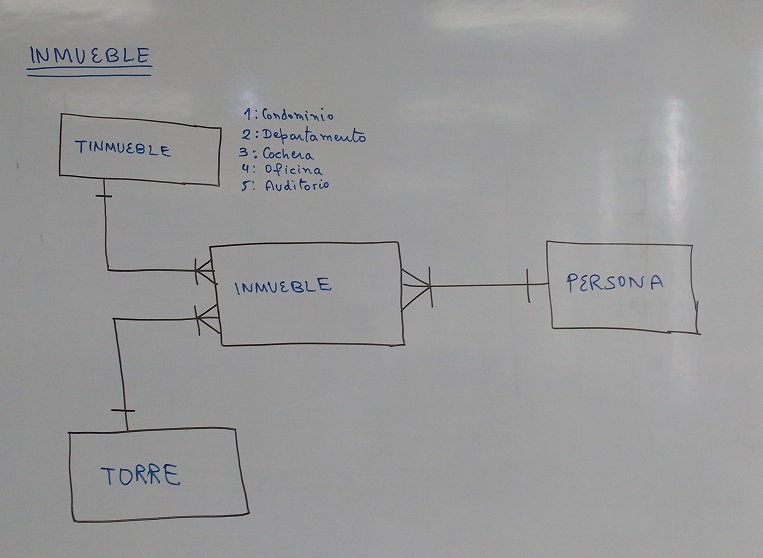 INMUEBLE
TINMUEBLE
1: Condominio
2: Departamento
3: Cochera
4: Oficina
5: Auditorio
INMUEBLE
PERSONA
TORRE